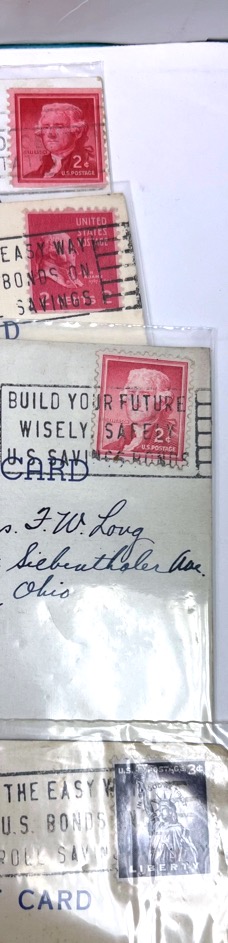 2¢
U.S. POSTAGE
UNITED
STATES
POSTAGE
EASY WAY
BONDS ON
SAVINGS
D
BUILD YOUR FUTURE
WISELY SAFELY
U.S. SAVINGS BONDS
2¢
U.S. POSTAGE
CARD
s. F. W. Long
Siebenthaler Ave.
Ohio
U.S. POSTAGE 3¢
THE EASY W
U.S. BONDS
ROLL SAVIN
LIBERTY
CARD